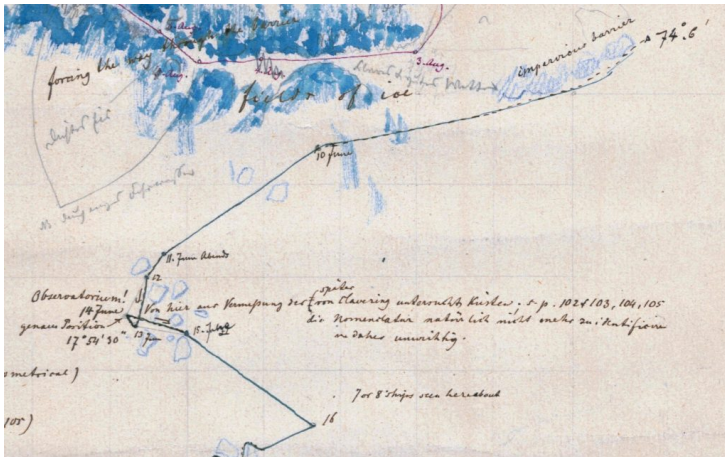 5. Aug.
forcing the way through the barrier
4. Aug.
3. Aug.
fields of ice
impervious barrier
74°.6'
10 June
11. Juni Abends
12
Observatorium!
14 June
genaue Position
17° 54' 30"
13 Jun
15. July
später
Von hier aus Vermessung der von Clavering untersuchte Küsten. s. p. 102 & 103, 104, 105
die Nomenclatur natürlich nicht mehr zu identificiren
u. daher unwichtig.
7 or 8 ships seen hereabout
16
ometrical)
105)